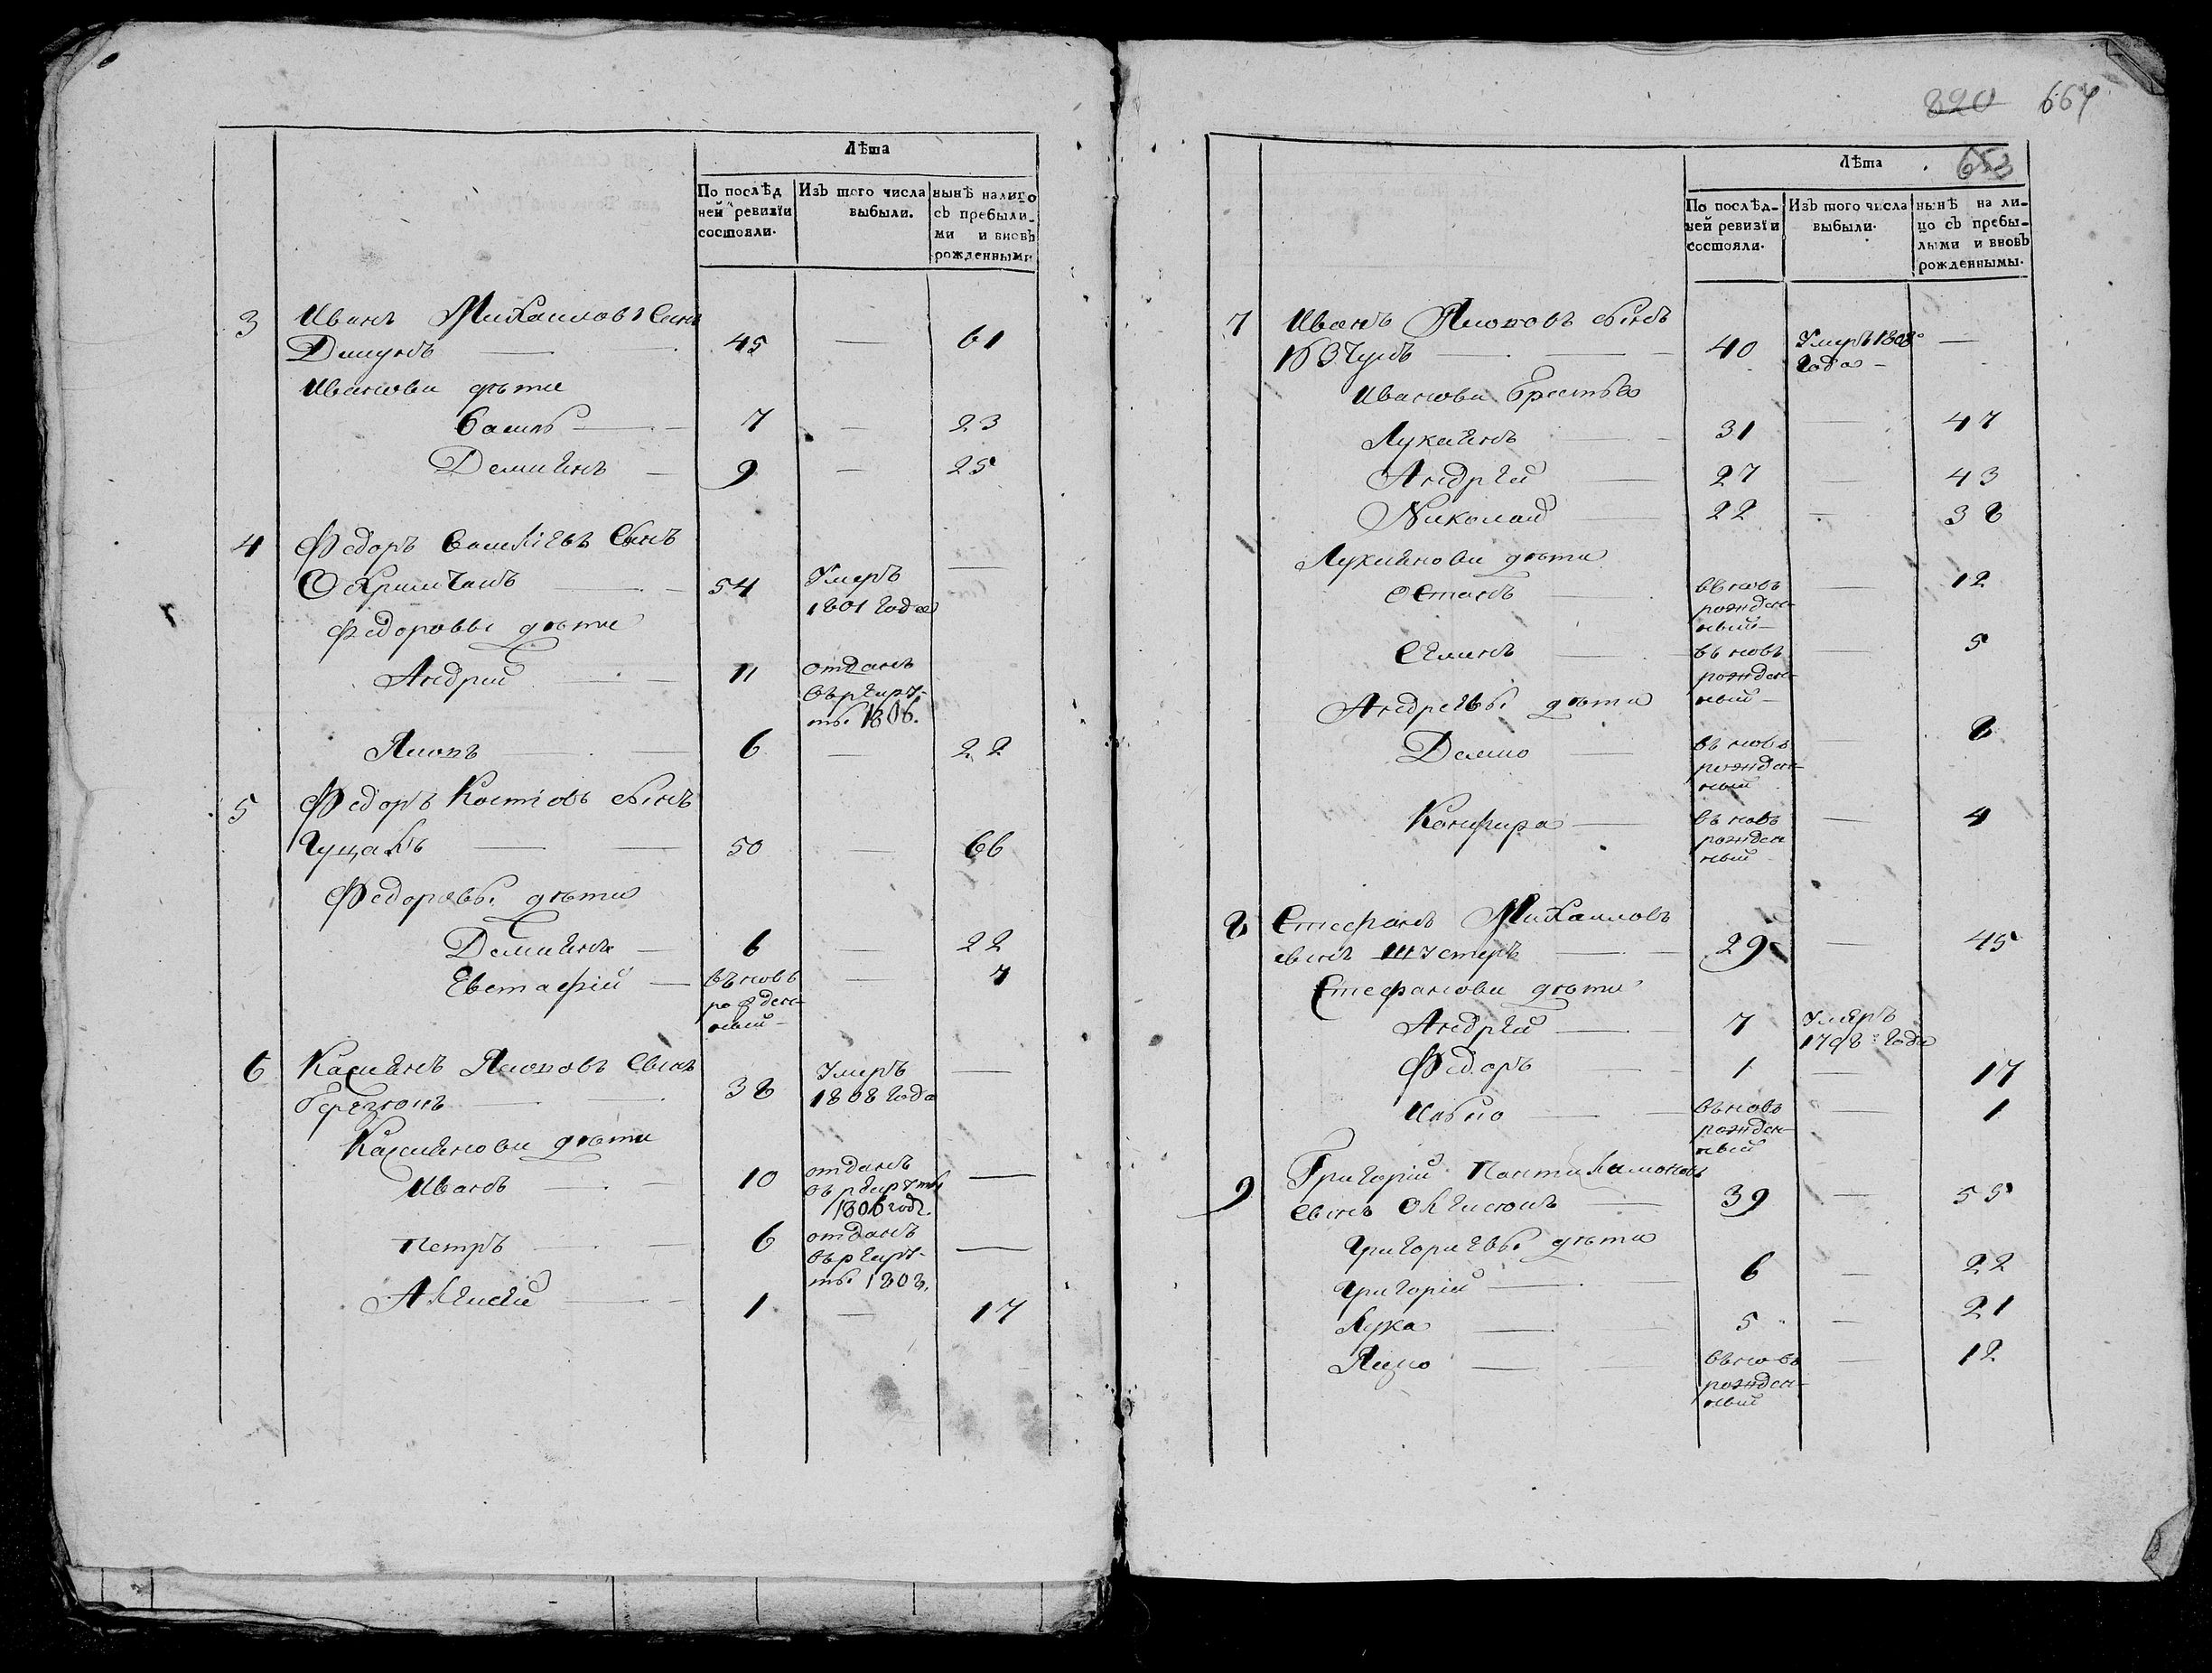 Лѣта
По послѣд
ней ревизіи
состояли.
Изъ того числа
выбыли.
нынѣ налицо
съ пребыли-
ми и вновь
рожденными
3 Иванъ Михаиловъ Сынъ
45 — 61
Иванови дѣти
7 — 23
Демиянъ — 9 — 25
4 Федоръ Сынъ
54 Умеръ —
1801 Года
Федоровы дѣти
Андрий — 11 отданъ
въ рекру-
ты 1806.
6 — 22
5 Федоръ Костювъ сынъ
Гуцакъ — 50 — 66
Федоровы дѣти
Демиянъ — 6 — 22
Евстафій — въновъ — 7
рожден-
ный —
6 Касиянъ Сынъ
38 Умеръ —
1808 Года
Касиянови дѣти
Иванъ — 10 отданъ —
въ рекруты
1806 года.
Петръ — 6 отданъ —
въ рекру-
ты 1808.
Алексей — 1 — 17
820 667
653
Лѣта
По послѣд-
ней ревизіи
состояли.
Изъ того числа
выбыли.
нынѣ на ли-
цо съ пребы-
лыми и вновь
рожденнымы.
7 Иванъ сынъ
40 Умеръ 1808го —
Года —
Иванови братья
Лукиянъ — 31 — 47
Андрей — 27 — 43
Николай — 22 — 38
Лукиянови дѣти
Остапъ — въновъ — 12
рожден-
ный —
Семенъ — въ новъ — 5
рожден-
ный —
Андреевы дѣти
Демко — въ новъ — 8
рожден-
ный
въ новъ — 4
рожден
ный
8 Стефанъ Михаиловъ
сынъ — 29 — 45
Стефанови дѣти
Андрей — 7 Умеръ
1798го Года
Федоръ — 1 — 17
въновъ — 1
рожден-
ный
9 Григорій Пантилимоновъ
Сынъ — 39 — 55
Григориевы дѣти
Григорій — 6 — 22
Лука — 5 — 21
Яцко — въновъ — 12
рожден-
ный